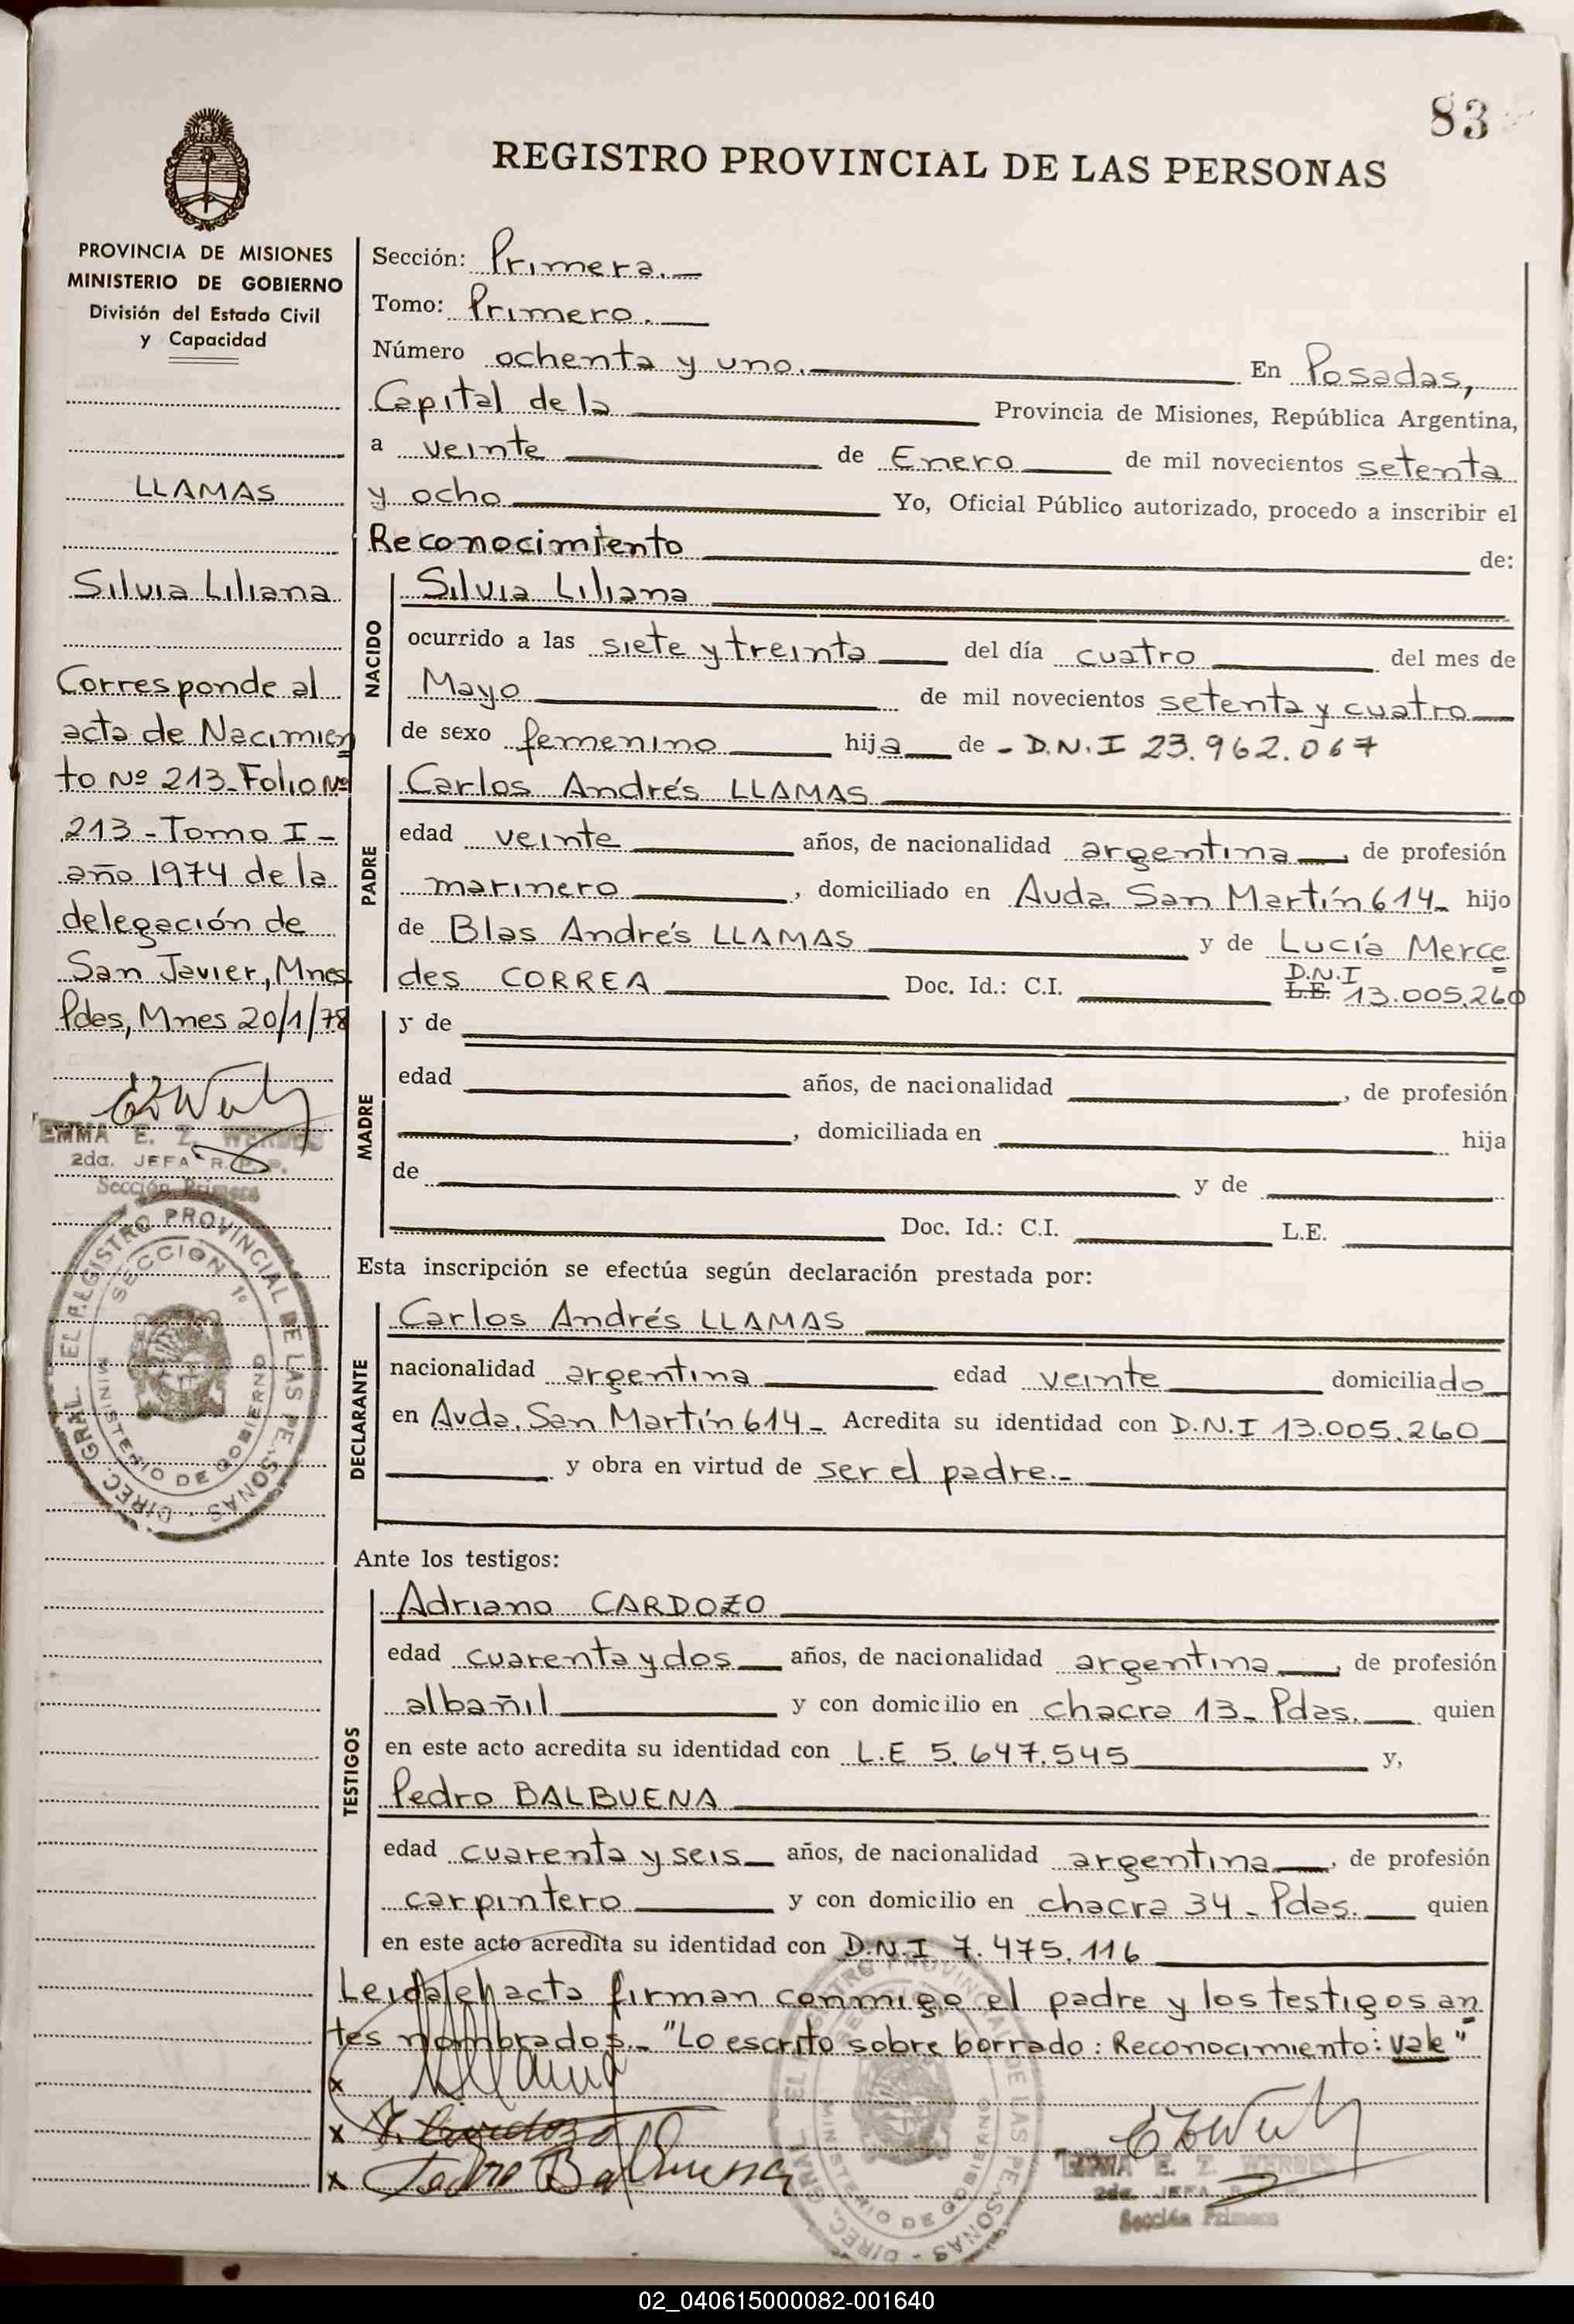 83
REGISTRO PROVINCIAL DE LAS PERSONAS
PROVINCIA DE MISIONES
MINISTERIO DE GOBIERNO
División del Estado Civil
y Capacidad
LLAMAS
Silvia Liliana
Corresponde al
acta de Nacimien
to Nº 213-Folio Nº
213-Tomo I-
año 1974 de la
delegación de
San Javier, Mnes
Pdas, Mnes 20/1/78
EMMA E. Z. WERBES
2da. JEFA R. P. P.
Sección Primera
DIREC. GRAL. EL REGISTRO PROVINCIAL DE LAS PERSONAS
SECCION 1º
MINISTERIO DE GOBIERNO
Sección: Primera.
Tomo: Primero.
Número ochenta y uno. En Posadas,
Capital de la Provincia de Misiones, República Argentina,
a veinte de Enero de mil novecientos setenta
y ocho Yo, Oficial Público autorizado, procedo a inscribir el
Reconocimiento de:
NACIDO
Silvia Liliana
ocurrido a las siete y treinta del día cuatro del mes de
Mayo de mil novecientos setenta y cuatro
de sexo femenino hija de - D.N.I 23.962.067
PADRE
Carlos Andrés LLAMAS
edad veinte años, de nacionalidad argentina, de profesión
marinero, domiciliado en Avda. San Martín 614- hijo
de Blas Andrés LLAMAS y de Lucía Merce
des CORREA Doc. Id.: C.I. D.N.I L.E. 13.005.260
MADRE
y de
edad años, de nacionalidad , de profesión
, domiciliada en hija
de y de
Doc. Id.: C.I. L.E.
Esta inscripción se efectúa según declaración prestada por:
DECLARANTE
Carlos Andrés LLAMAS
nacionalidad argentina edad veinte domiciliado
en Avda. San Martín 614- Acredita su identidad con D.N.I 13.005.260
y obra en virtud de ser el padre.-
Ante los testigos:
TESTIGOS
Adriano CARDOZO
edad cuarenta y dos años, de nacionalidad argentina, de profesión
albañil y con domicilio en chacra 13- Pdas. quien
en este acto acredita su identidad con L.E 5.647.545 y,
Pedro BALBUENA
edad cuarenta y seis años, de nacionalidad argentina, de profesión
carpintero y con domicilio en chacra 34- Pdas. quien
en este acto acredita su identidad con D.N.I 7.475.116
Leida el acta firman conmigo el padre y los testigos an
tes nombrados.- "Lo escrito sobre borrado: Reconocimiento: vale"
x
x A. Cardozo
x Pedro Balbuena
DIREC. GRAL. EL REGISTRO PROVINCIAL DE LAS PERSONAS
MINISTERIO DE GOBIERNO
EMMA E. Z. WERBES
2da. JEFA R.
Sección Primera
02_040615000082-001640